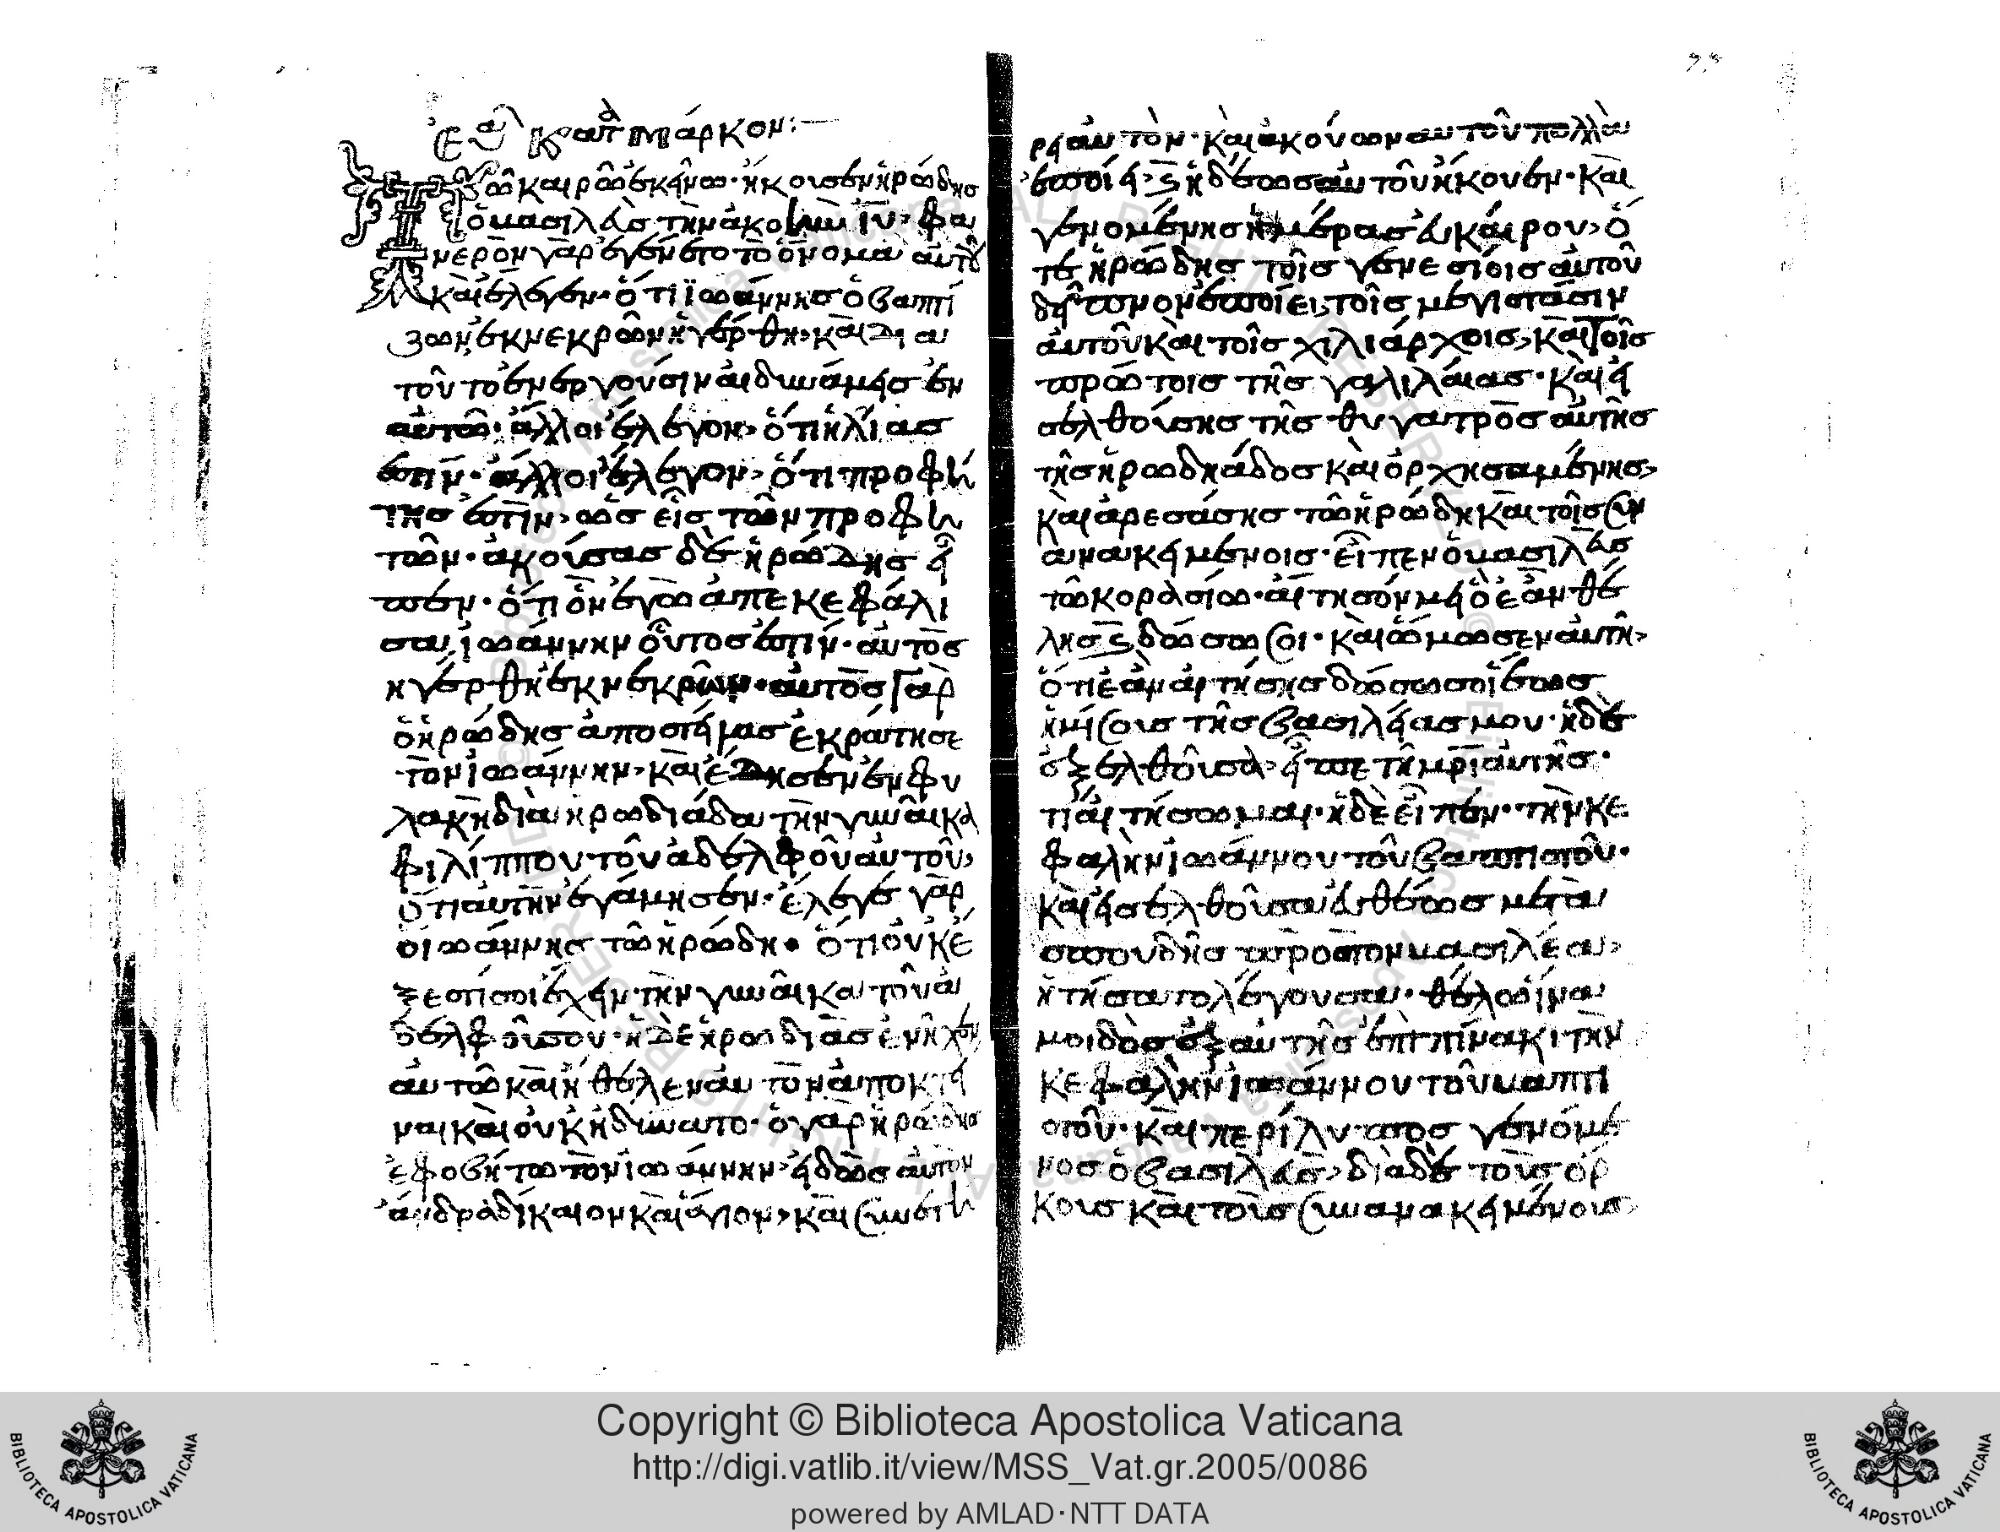 Εὐα κατὰ μάρκον:—
Τῶ καιρῶ ἐκείνω· ἤκουσεν ἡρώδης
ὁ βασιλεὺς τὴν ἀκοὴν ἰυ· φα
νερὸν γὰρ ἐγένετο τὸ ὄνομα αὐτοῦ
καὶ ἔλεγεν· ὅτι ἰωάννης ὁ βαπτί
ζων, ἐκ νεκρῶν ἠγέρθη· καὶ δια
τοῦτο ἐνεργοῦσιν αἱ δυνάμεις ἐν
αὐτῶ· ἄλλοι ἔλεγον, ὅτι ἠλίας
ἐστίν· ἄλλοι ἔλεγον, ὅτι προφή
της ἐστὶν, ὡς εἷς τῶν προφη
τῶν· ἀκούσας δὲ ἡρώδης εἶ
πεν· ὅτι ὃν ἐγὼ ἀπεκεφάλι
σα ἰωάννην οὗτος ἐστίν· αὐτὸς
ἠγέρθη ἐκ νεκρῶν· αὐτὸς γὰρ
ὁ ἡρώδης ἀποστείλας ἐκράτησε
τὸν ἰωάννην, καὶ ἔδησεν ἐν φυ
λακῆ διὰ ἡρωδιάδα τὴν γυναῖκα
φιλίππου τοῦ ἀδελφοῦ αὐτοῦ,
ὅτι αὐτὴν ἐγάμησεν· ἔλεγε γὰρ
ὁ ἰωάννης τῶ ἡρώδη· ὅτι οὐκ ἔ
ξεστί σοι ἔχειν τὴν γυναῖκα τοῦ ἀ
δελφοῦ σου· ἡ δὲ ἡρωδιὰς ἐνεῖχεν
αὐτῶ καὶ ἤθελεν αὐτὸν ἀποκτεῖ
ναι καὶ οὐκ ἠδύνατο· ὁ γὰρ ἡρώδης
ἐφοβεῖτο τὸν ἰωάννην, εἰδὼς αὐτὸν
ἄνδρα δίκαιον καὶ ἅγιον, καὶ συνετή
ρει αὐτὸν· καὶ ἀκούων αὐτοῦ πολλὰ
ἐποίει· καὶ ἡδέως αὐτοῦ ἤκουεν· καὶ
γενομένης ἡμέρας εὐκαίρου, ὅ
τε ἡρώδης τοῖς γενεσίοις αὐτοῦ
δεῖπνον ἐποίει, τοῖς μεγιστᾶσιν
αὐτοῦ καὶ τοῖς χιλιάρχοις, καὶ τοῖς
πρώτοις τῆς γαλιλαίας· καὶ εἰ
σελθούσης τῆς θυγατρὸς αὐτῆς
τῆς ἡρωδιάδος καὶ ὀρχησαμένης,
καὶ ἀρεσάσης τῶ ἡρώδη καὶ τοῖς συν
ανακειμένοις· εἶπεν ὁ βασιλεὺς
τῶ κορασίω· αἴτησόν με ὃ ἐὰν θέ
λης καὶ δώσω σοι· καὶ ὤμοσεν αὐτῆ,
ὅτι ἐὰν αἰτήσης δώσω σοι ἕως
ἡμίσους τῆς βασιλείας μου· ἡ δὲ
ἐξελθοῦσα, εἶπε τῆ μρὶ αὐτῆς·
τί αἰτήσωμαι· ἡ δὲ εἶπεν· τὴν κε
φαλὴν ἰωάννου τοῦ βαπτιστοῦ·
καὶ εἰσελθοῦσα εὐθέως μετὰ
σπουδῆς πρὸς τὸν βασιλέα,
ἠτήσατο λέγουσα· θέλω ἵνα
μοι δὸς ἐξαυτῆς ἐπὶ πίνακι τὴν
κεφαλὴν ἰωάννου τοῦ βαπτι
στοῦ· καὶ περίλυπος γενόμε
νος ὁ βασιλεὺς, διὰ δὲ τοὺς ὅρ
κους καὶ τοὺς συνανακειμένους,
Copyright © Biblioteca Apostolica Vaticana
http://digi.vatlib.it/view/MSS_Vat.gr.2005/0086
powered by AMLAD·NTT DATA
BIBLIOTECA APOSTOLICA VATICANA
BIBLIOTECA APOSTOLICA VATICANA